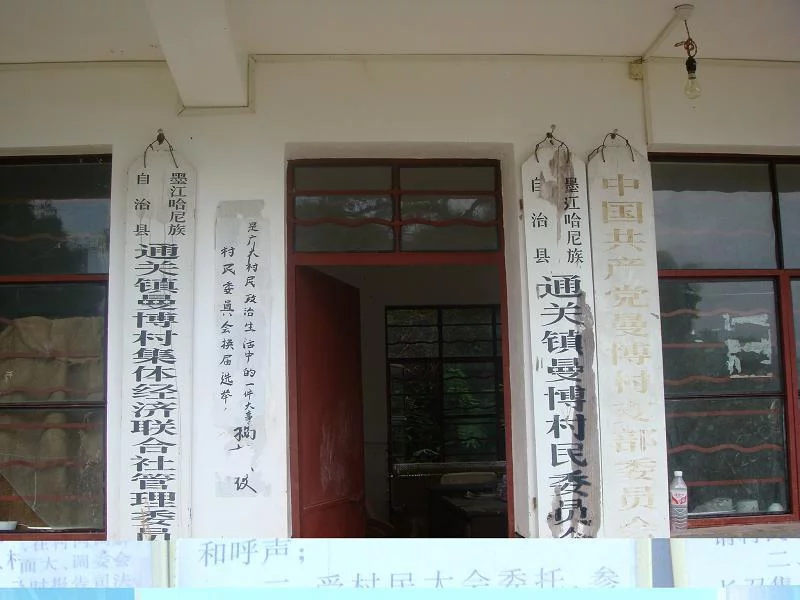 墨江哈尼族
自治县
通关镇曼博村集体经济联合社管理委员
村民委员会换届选举，
是广大村民政治生活中的一件大事
墨江哈尼族
自治县
通关镇曼博村民委员会
中国共产党曼博村支部委员会
和呼声；
受村民大会委托，参
而大、调委会
二、